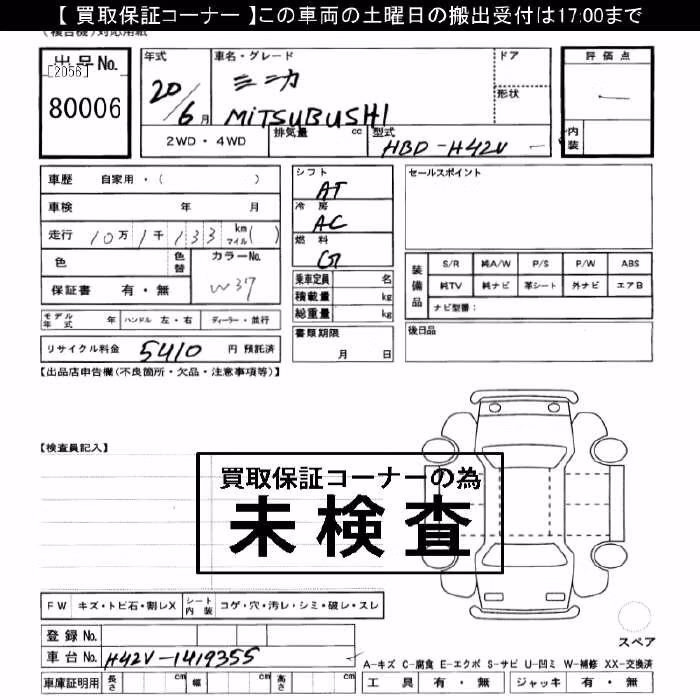 【 買取保証コーナー 】この車両の土曜日の搬出受付は17:00まで
(複合機)対応用紙
出品No.
[2056]
80006
年式
20/6月
車名・グレード
ミニカ
MiTSUBUSHI
ドア
形状
評価点
内装
2WD・4WD
排気量 cc
型式
HBD-H42V
車歴 自家用・( )
車検 年 月
走行 10万1千133 km マイル( )
色 色替 カラーNo.
W37
保証書 有・無
モデル年式 年 ハンドル 左・右 ディーラー・並行
リサイクル料金 5410 円 預託済
シフト
AT
冷房
AC
燃料
G
乗車定員 名
積載量 kg
総重量 kg
書類期限
月 日
セールスポイント
装備品
S/R 純A/W P/S P/W ABS
純TV 純ナビ 革シート 外ナビ エアB
ナビ型番:
後日品
【出品店申告欄(不良箇所・欠品・注意事項等)】
【検査員記入】
買取保証コーナーの為
未検査
FW キズ・トビ石・割レX シート内装 コゲ・穴・汚レ・シミ・破レ・スレ
登録No.
車台No. H42V-1419355
車庫証明用 長さ cm 幅 cm 高さ cm
スペア
A-キズ C-腐食 E-エクボ S-サビ U-凹ミ W-補修 XX-交換済
工具 有・無 ジャッキ 有・無